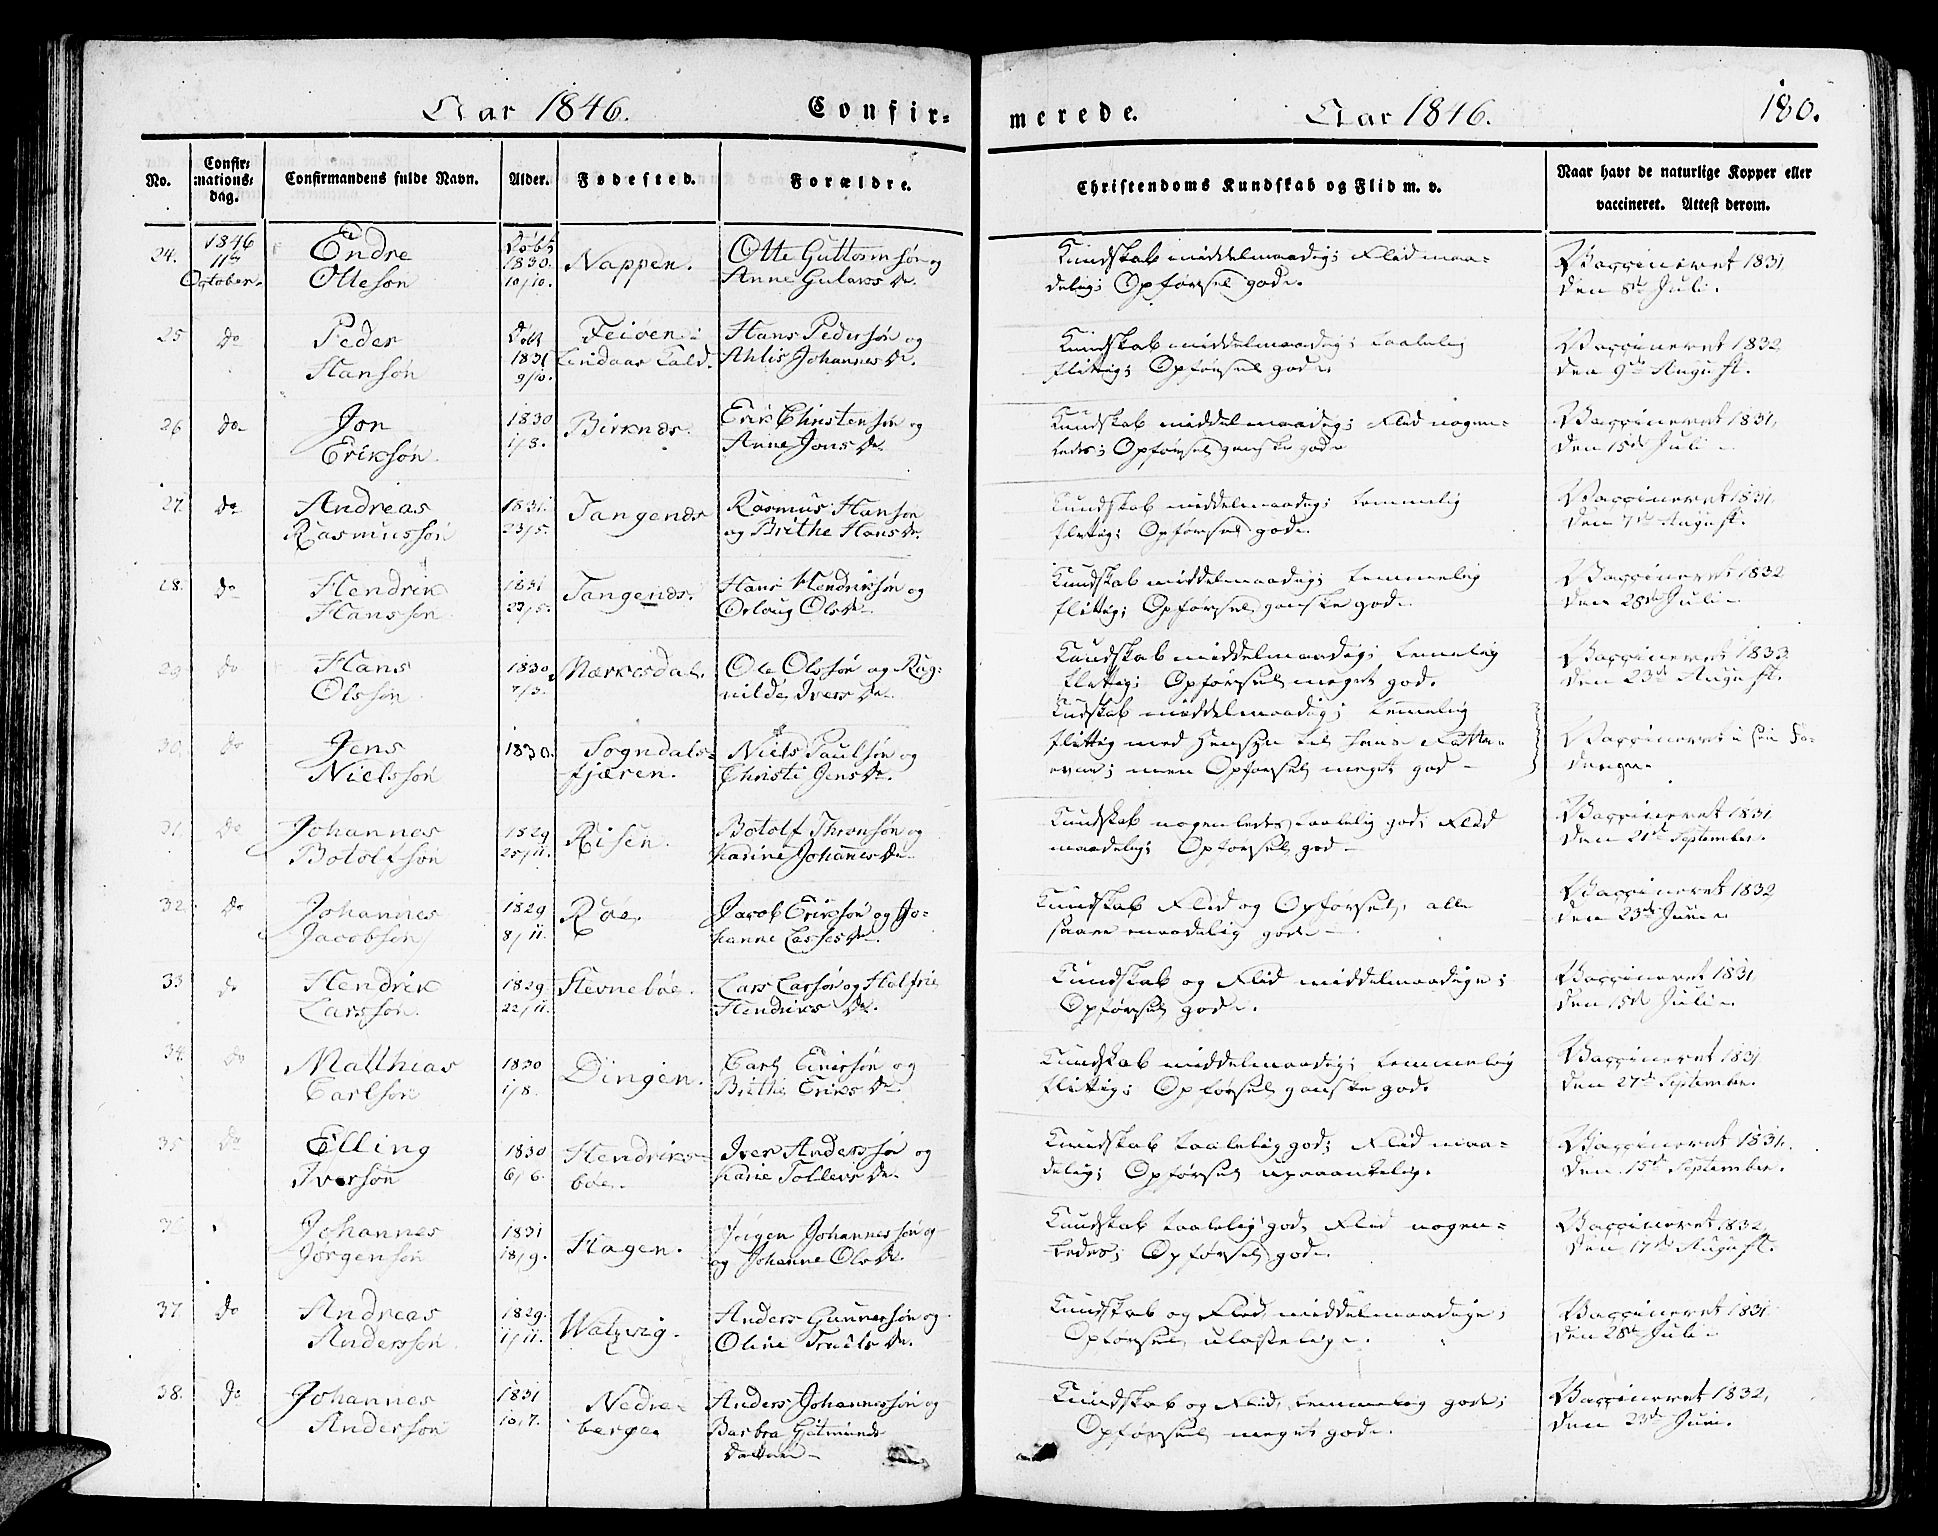 Aar 1846. Confir-
merede. Aar 1846. 180.
No.
Confir-
mations-
dag.
Confirmandens fulde Navn.
Alder.
Fødested.
Forældre.
Christendoms Kundskab og Flid m. v.
Naar havt de naturlige Kopper eller
vaccineret. Attest derom.
24. 1846 Endre Døbt Otte Guttormsøn og Kundskab middelmaadig; Flid maa- Vaccineret 1831
11te 1830. Nappen.
October. Ottesøn 10/10. Anne Gulaks Dr. delig; Opførsel god. den 8de Juli.
25 Do Peder Døbt Feiøen i Hans Pedersøn og Kundskab middelmaadig; taalelig Vaccineret 1832
Hansøn 1831 Lindaas Kald. Ahlis Johannes Dr. flittig; Opførsel god. den 9de August.
9/10.
26 Do Jon 1830 Birknes. Erik Christensøn og Kundskab middelmaadig; Flid nogen- Vaccineret 1831,
Eriksøn. 1/8. Anne Jons Dr. ledes; Opførsel ganske god den 15de Juli.
27. Do Andreas 1831. Tangenes Rasmus Hansøn Kundskab middelmaadig; temmelig Vaccineret 1831,
Rasmussøn 23/5. og Brithe Hans Dr. flittig; Opførsel god. den 7de August.
28. Do Hendrik 1831 Tangenes. Hans Hendriksøn og Kundskab middelmaadig; temmelig Vaccineret 1832
Hanssøn 23/5. Orloug Ols Dr. flittig; Opførsel ganske god. den 28de Juli.
29 Do Hans 1830 Mærkesdal. Ole Olssøn og Rag- Kundskab middelmaadig; temelig Vaccineret 1833
Olssøn 7/3. nilde Ivers Dr. flittig; Opførsel meget god. den 23de August.
Kundskab middelmaadig; temelig
30. Do Jens 1830. Sogndals- Niels Paulsøn og flittig med Hensyn til hans Fatte- Vaccineret i sin Fø-
Nielssøn fjæren. Christi Jens Dr. evne; men Opførsel meget god
31. Do Johannes 1829 Risen. Botolf Thronsøn og Kundskab nogenledes taalelig god, Flid Vaccineret 1831
Botolfsøn 25/11. Karine Johannes Dr. maadelig; Opførsel god den 21de September.
32. Do Johannes 1829 Røe, Jacob Eriksøn og Jo- Kundskab Flid og Opførsel, alle Vaccineret 1832
Jacobsøn 8/11. hanne Lasses Dr. maadelig gode den 23de Juni
33 do Hendrik 1829 Stevnebøe. Lars Larsøn og Halfrie Kundskab og Flid middelmaadige; Vaccineret 1831,
Larssøn. 22/11. Hendriks Dr. Opførsel god. den 15de Juli.
34. Do Matthias 1830 Dingen. Carl Einersøn og Kundskab middelmaadig; temmelig Vaccineret 1831
Carlsøn 1/8. Brithe Eriks Dr. flittig; Opførsel ganske god. den 27de September.
35 Do Elling 1830 Hendriks- Iver Anderssøn og Kundskab taalelig god; Flid maa- Vaccineret 1831.
Iversøn 6/6. bøe. Karie Tollevs Dr. delig; Opførsel upaaankelig. den 15de September.
36 Johannes 1831 Hagen. Jørgen Johannessøn og Kundskab taalelig god, Flid nogen- Vaccineret 1832,
Jørgensøn 18/9. og Johanne Ols Dr. ledes; Opførsel god. den 17de August.
37. Do Andreas 1829. Watzvig. Anders Gunnersøn og Kundskab og Flid middelmaadige; Vaccineret 1831
Anderssøn. 1/11. Oline Troels Dr. Opførsel ulastelige. den 28de Juli
38. Do Johannes 1831 Nedre- Anders Johannessøn og Kundskab og Flid, temmelig gode; Vaccineret 1832,
Andersøn 10/7. berge Barbra Gutmunds Opførsel meget god. den 23de Juni.
Datter